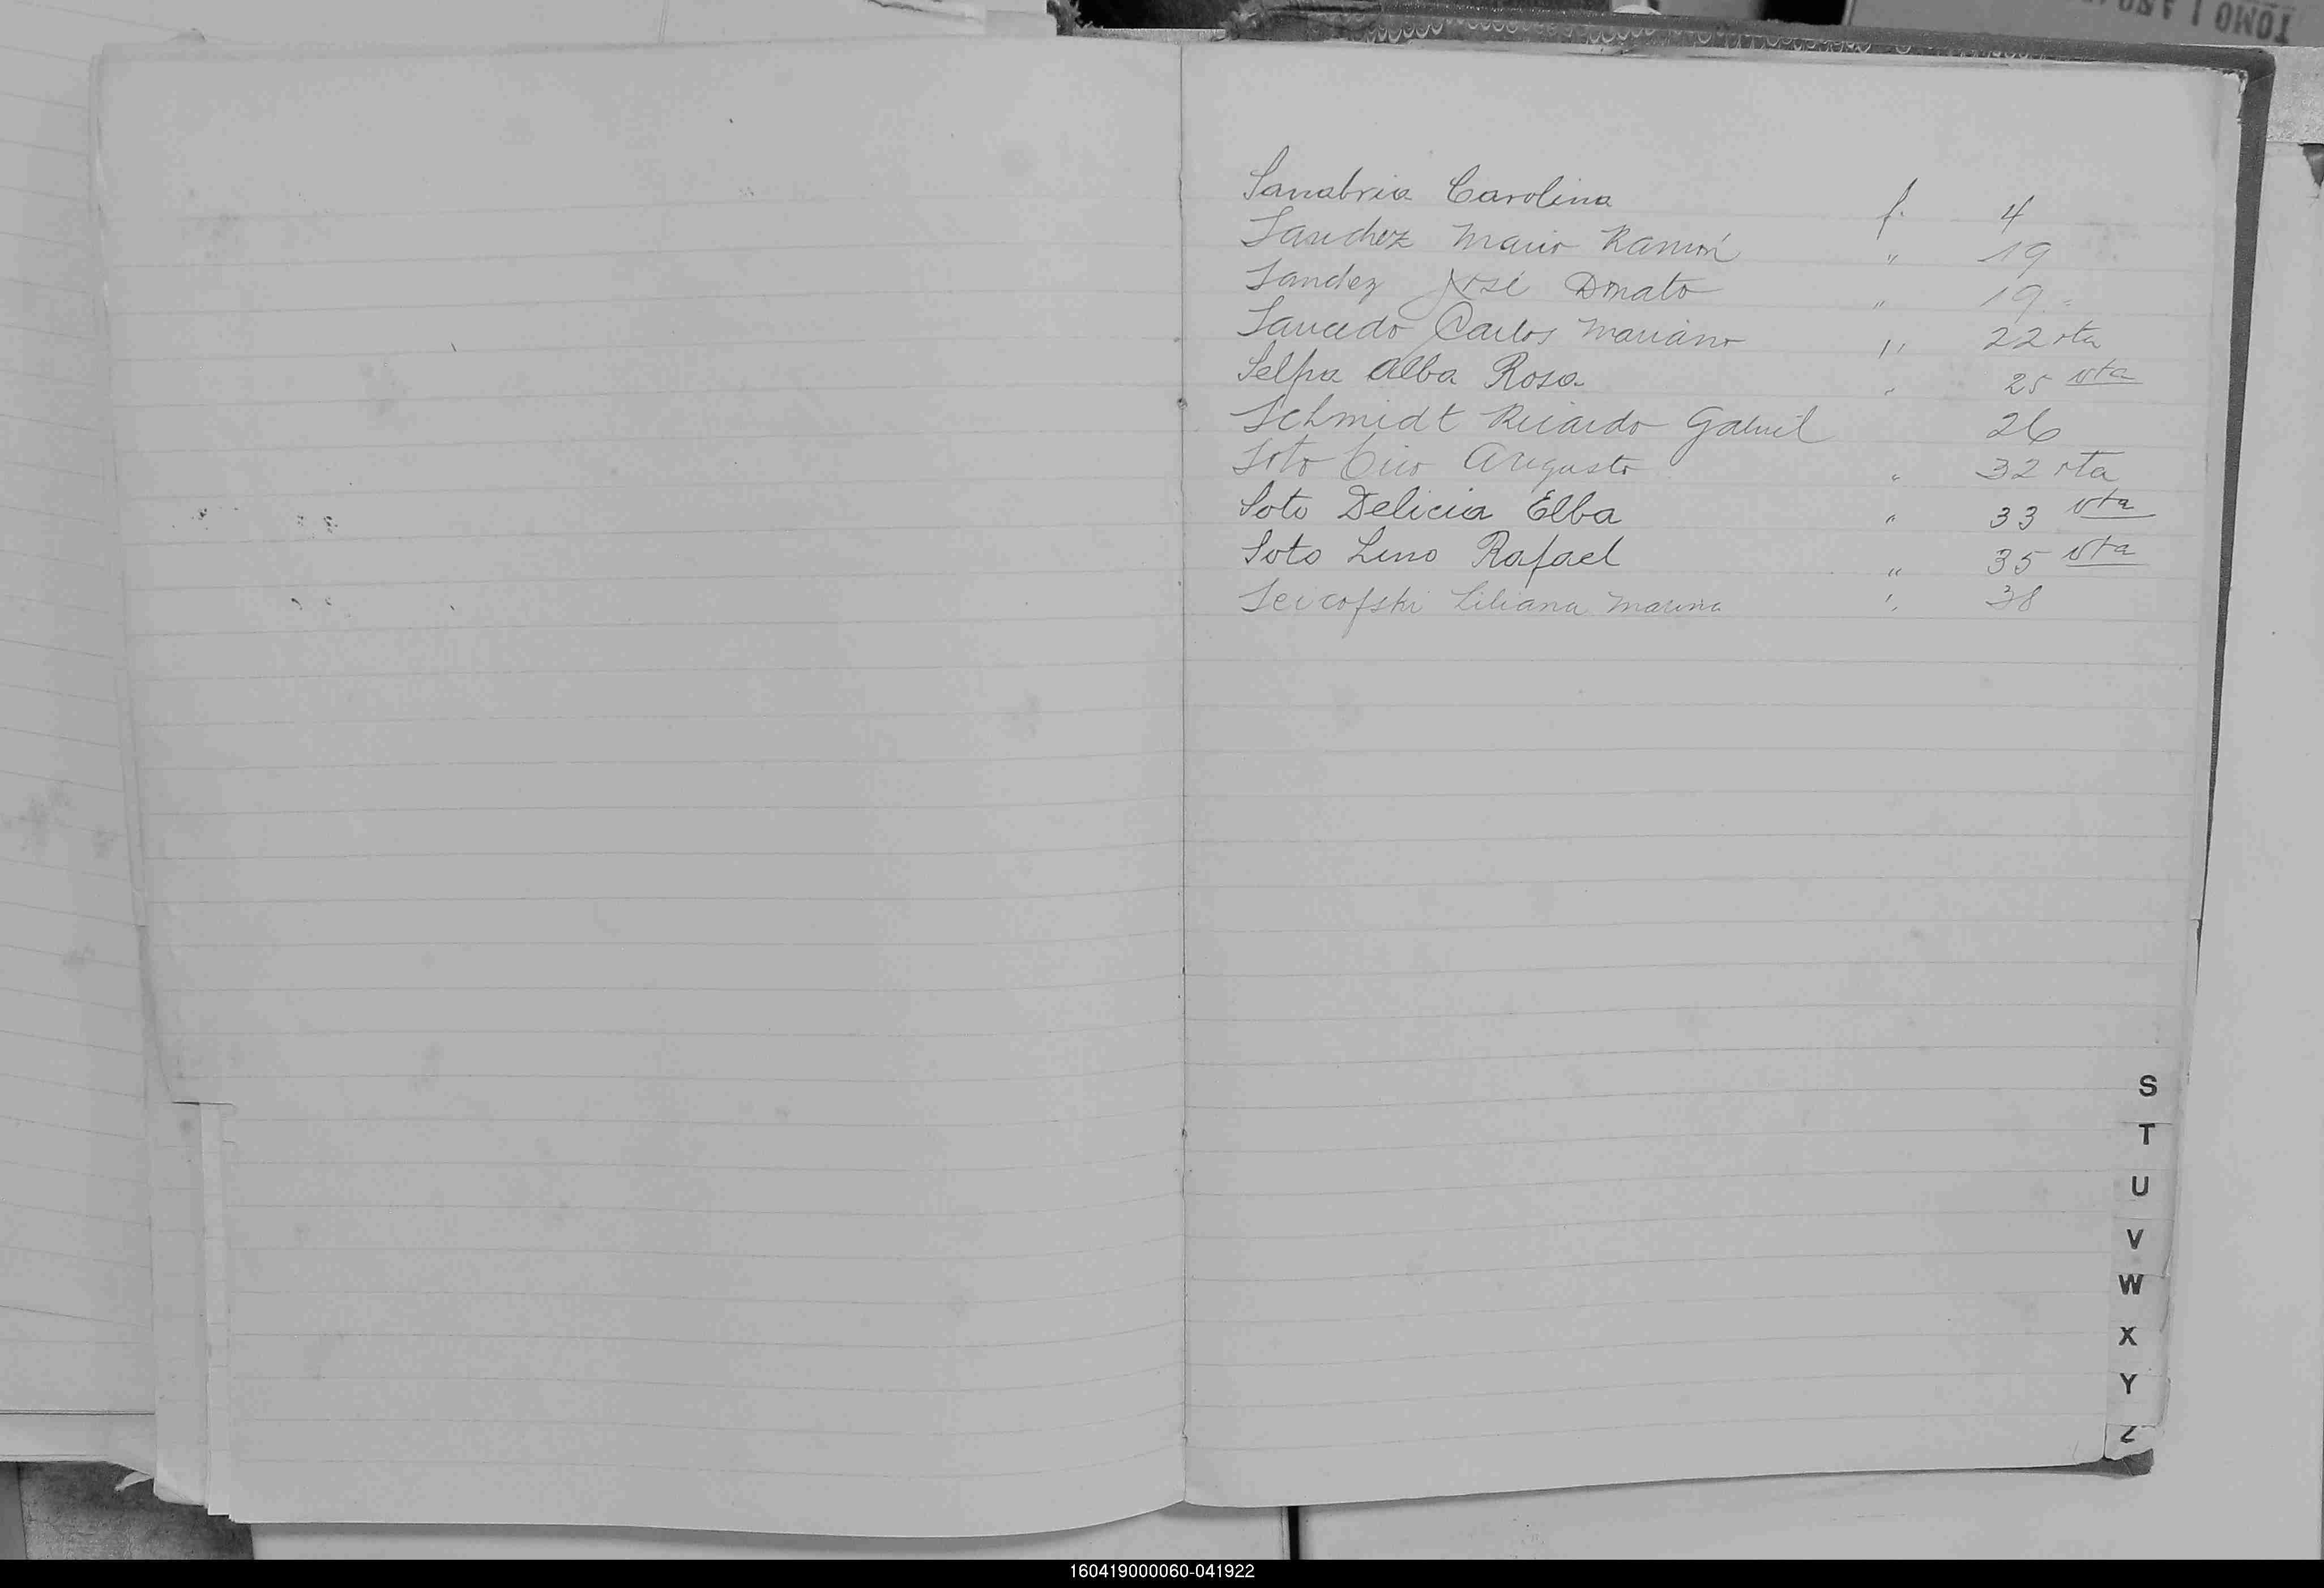 Sanabria Carolina f. 4
Sanchez Mario Ramón " 19
Sandez José Donato " 19
Saucedo Carlos Mariano " 22 vta
Selpa Alba Rosa " 25 vta
Schmidt Ricardo Gabriel 26
Soto Ciro Augusto " 32 vta
Soto Delicia Elba " 33 vta
Soto Lino Rafael " 35 vta
Seicofski Liliana Marina " 38
S
T
U
V
W
X
Y
Z
TOMO I AÑO
160419000060-041922